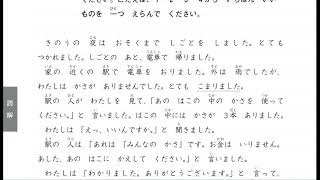 ものを 一つ えらんで ください。
きのうの 夜は おそくまで しごとを しました。とても
つかれました。しごとの あと、電車で 帰りました。
家の 近くの 駅で 電車を おりました。外は 雨でしたが、
わたしは かさが ありませんでした。とても こまりました。
駅の 人が わたしを 見て、「あの はこの 中の かさを 使って
ください。」と 言いました。はこの 中には かさが 3本 ありました。
わたしは「えっ、いいんですか。」と 聞きました。
駅の 人は「あれは『みんなの かさ』です。お金は いりません。
あした、あの はこに かえして ください。」と 言いました。
わたしは「わかりました。ありがとうございます。」と 言って、
読解